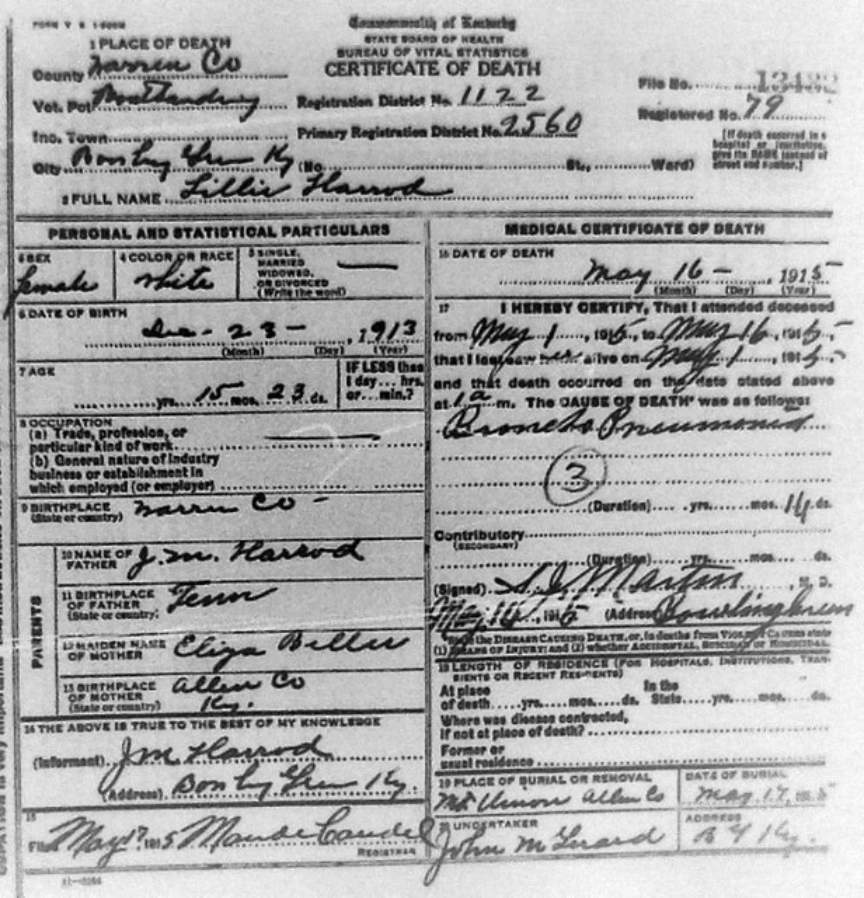 Commonwealth of Kentucky
STATE BOARD OF HEALTH
BUREAU OF VITAL STATISTICS
CERTIFICATE OF DEATH
1 PLACE OF DEATH
County Warren Co
Vot. Pct
Registration District No. 1122
File No. 13482
Inc. Town
Primary Registration District No. 2560
Registered No. 79
City Bowling Green Ky (No. St., Ward)
[If death occurred in a hospital or institution, give its NAME instead of street and number.]
2 FULL NAME Lillie Harrod
PERSONAL AND STATISTICAL PARTICULARS
3 SEX female
4 COLOR OR RACE white
5 SINGLE, MARRIED WIDOWED, OR DIVORCED (Write the word)
6 DATE OF BIRTH
Dec - 23 - , 1913
(Month) (Day) (Year)
7 AGE
yrs. 15 mos. 23 ds.
IF LESS than 1 day... hrs. or... min.?
8 OCCUPATION
(a) Trade, profession, or
particular kind of work
(b) General nature of industry
business or establishment in
which employed (or employer)
9 BIRTHPLACE (State or country) Warren Co -
PARENTS
10 NAME OF FATHER J. M. Harrod
11 BIRTHPLACE OF FATHER (State or country) Tenn
12 MAIDEN NAME OF MOTHER Eliza
13 BIRTHPLACE OF MOTHER (State or country) Allen Co Ky.
14 THE ABOVE IS TRUE TO THE BEST OF MY KNOWLEDGE
(Informant) J M Harrod
(Address) Bowling Green Ky.
15
Filed May 17 1915 Maude
REGISTRAR
MEDICAL CERTIFICATE OF DEATH
16 DATE OF DEATH
May 16 - , 1915
(Month) (Day) (Year)
17 I HEREBY CERTIFY, That I attended deceased
from May 1, 1915, to May 16, 1915,
that I last saw her alive on May 1, 1915,
and that death occurred on the date stated above
at 1 a m. The CAUSE OF DEATH was as follows:
Broncho Pneumonia
3
(Duration) yrs. mos. 14 ds.
Contributory
(SECONDARY)
(Duration) yrs. mos. ds.
(Signed) S. J. Martin, M. D.
May 16, 1915 (Address) Bowling Green
State the DISEASE CAUSING DEATH, or, in deaths from VIOLENT CAUSES state
(1) MEANS OF INJURY; and (2) whether ACCIDENTAL, SUICIDAL or HOMICIDAL.
18 LENGTH OF RESIDENCE (FOR HOSPITALS, INSTITUTIONS, TRANSIENTS OR RECENT RESIDENTS)
At place of death yrs. mos. ds. In the State yrs. mos. ds.
Where was disease contracted,
if not at place of death?
Former or
usual residence
19 PLACE OF BURIAL OR REMOVAL
Mt Union Allen Co
DATE OF BURIAL
May 17, 1915
20 UNDERTAKER
John
ADDRESS
B G Ky.